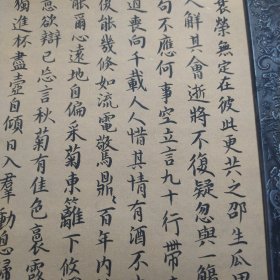 衰榮無定在彼此更共之邵生瓜田
人解其會逝將不復疑忽與一觴
不應何事空立言九十行帶
道喪向千載人人惜其情有酒不
能幾倏如流電驚鼎鼎百年內
能爾心遠地自偏采菊東籬下攸
意欲辯已忘言秋菊有佳色裛露
獨進杯盡壺自傾日入羣動息歸